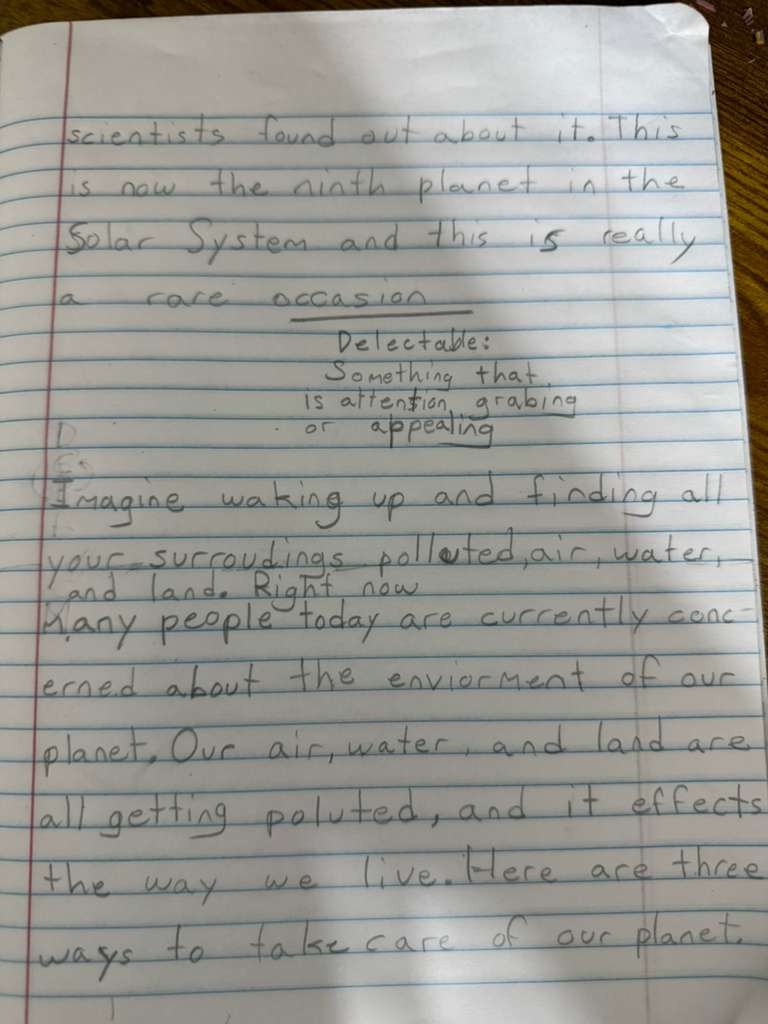 scientists found out about it. This
is now the ninth planet in the
Solar System and this is really
a rare occasion
Delectable:
Something that
is attention grabing
or appealing
Imagine waking up and finding all
your surroudings polluted, air, water,
and land. Right now
Many people today are currently conc-
erned about the enviorment of our
planet. Our air, water, and land are
all getting poluted, and it effects
the way we live. Here are three
ways to take care of our planet.